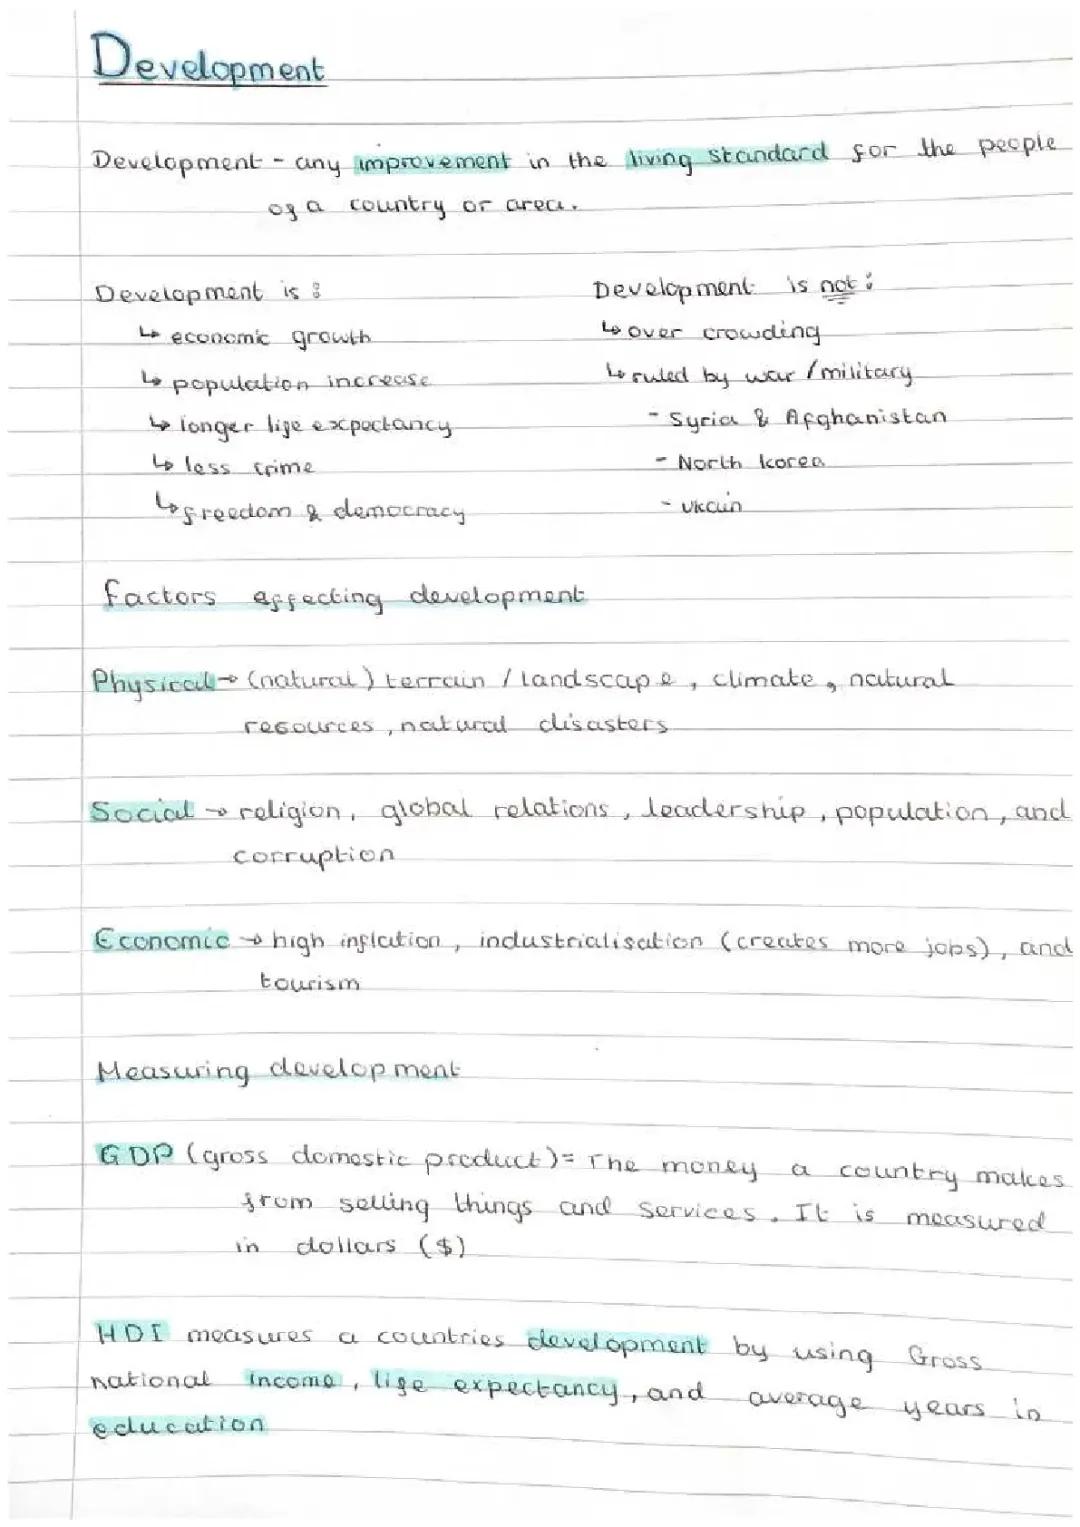 Development
Development - any improvement in the living standard for the people
of a country or area.
Development is :
↳ economic growth
↳ population increase
↳ longer life expectancy
↳ less crime
↳ freedom & democracy
Development is not :
↳ over crowding
↳ ruled by war / military
- Syria & Afghanistan
- North korea
- Ukain
factors affecting development
Physical → (natural) terrain / landscape, climate, natural
resources, natural disasters
Social → religion, global relations, leadership, population, and
corruption
Economic → high inflation, industrialisation (creates more jobs), and
tourism
Measuring development
GDP (gross domestic product) = The money a country makes
from selling things and services. It is measured
in dollars ($)
HDI measures a countries development by using Gross
national income, life expectancy, and average years in
education